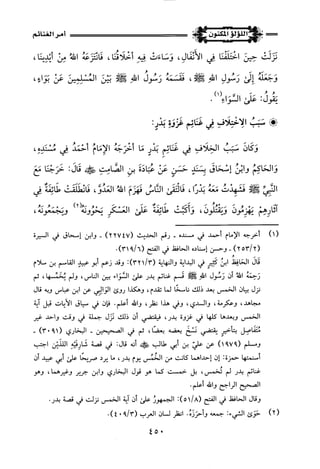 اللؤلؤ المكنون
أمر الغنائم
نَزَلَتْ حِينَ اخْتَلَفْنَا فِي الْأَنْفَالِ، وَسَاءَتْ فِيهِ أَخْلَاقُنَا، فَانْتَزَعَهُ اللهُ مِنْ أَيْدِينَا،
وَجَعَلَهُ إِلَىٰ رَسُولِ اللهِ ﷺ، فَقَسَمَهُ رَسُولُ اللهِ ﷺ بَيْنَ الْمُسْلِمِينَ عَنْ بَوَاءٍ،
يَقُولُ: عَلَى السَّوَاءِ(١).
سَبَبُ الِاخْتِلَافِ فِي غَنَائِمِ غَزْوَةِ بَدْرٍ:
وَكَانَ سَبَبُ الخِلَافِ فِي غَنَائِمِ بَدْرٍ مَا أَخْرَجَهُ الْإِمَامُ أَحْمَدُ فِي مُسْنَدِهِ،
وَالحَاكِمُ وابْنُ إِسْحَاقَ بِسَنَدٍ حَسَنٍ عَنْ عُبَادَةَ بنِ الصَّامِتِ ﷺ قَالَ: خَرَجْنَا مَعَ
النَّبِيِّ ﷺ فَشَهِدْتُ مَعَهُ بَدْرًا، فَالْتَقَى النَّاسُ فَهَزَمَ اللهُ العَدُوَّ، فَانْطَلَقَتْ طَائِفَةٌ فِي
آثَارِهِمْ يَهْزِمُونَ وَيَقْتُلُونَ، وَأَكَبَّتْ طَائِفَةٌ عَلَى العَسْكَرِ يَحْوُونَهُ(٢) وَيَجْمَعُونَهُ،
(١) أخرجه الإمام أحمد في مسنده - رقم الحديث (٢٢٧٤٧) - وابن إسحاق في السيرة
(٢٥٣/٢) - وحسن إسناده الحافظ في الفتح (٣١٩/٦).
قَالَ الحَافِظُ ابنُ كَثِيرٍ في البداية والنهاية (٣٢١/٣): وقد زعم أبو عبيدٍ القاسم بن سلام
رَحِمَهُ اللهُ أن رسول الله ﷺ قسم غنائم بدر على السَّوَاء بين الناس، ولم يُخَمِّسها، ثم
نزل بيان الخمس بعد ذلك ناسخًا لما تقدم، وهكذا روى الوَالِبِي عن ابن عباس وبه قال
مجاهد، وعكرمة، والسدي، وفي هذا نظر، والله أعلم. فإن في سياق الآيات قبل آية
الخمس وبعدها كلها في غزوة بدر، فيقتضي أن ذلك نَزَلَ جملة في وقت واحد غير
مُتَفَاصِلٍ بتأخيرٍ يقتضي نَسْخَ بعضه بعضًا، ثم في الصحيحين - البخاري (٣٠٩١) -
ومسلم (١٩٧٩) عن عليّ بن أبي طالب أنه قال: في قصة شَارِفَيْهِ اللَّذَيْنِ اجتب
أسنمتها حمزة: إن إحداهما كانت من الخُمْسِ يوم بدر، ما يرد صريحًا على أبي عبيد أن
غنائم بدر لم تُخمس، بل خمست كما هو قول البخاري وابن جرير وغيرهما، وهو
الصحيح الراجح والله أعلم.
وقال الحافظ في الفتح (٥١/٨): الجمهورُ على أن آية الخمس نزلت في قصة بدر.
(٢) حَوَى الشيءَ: جمعه وأحرَزَهُ. انظر لسان العرب (٤٠٩/٣).
٤٥٠